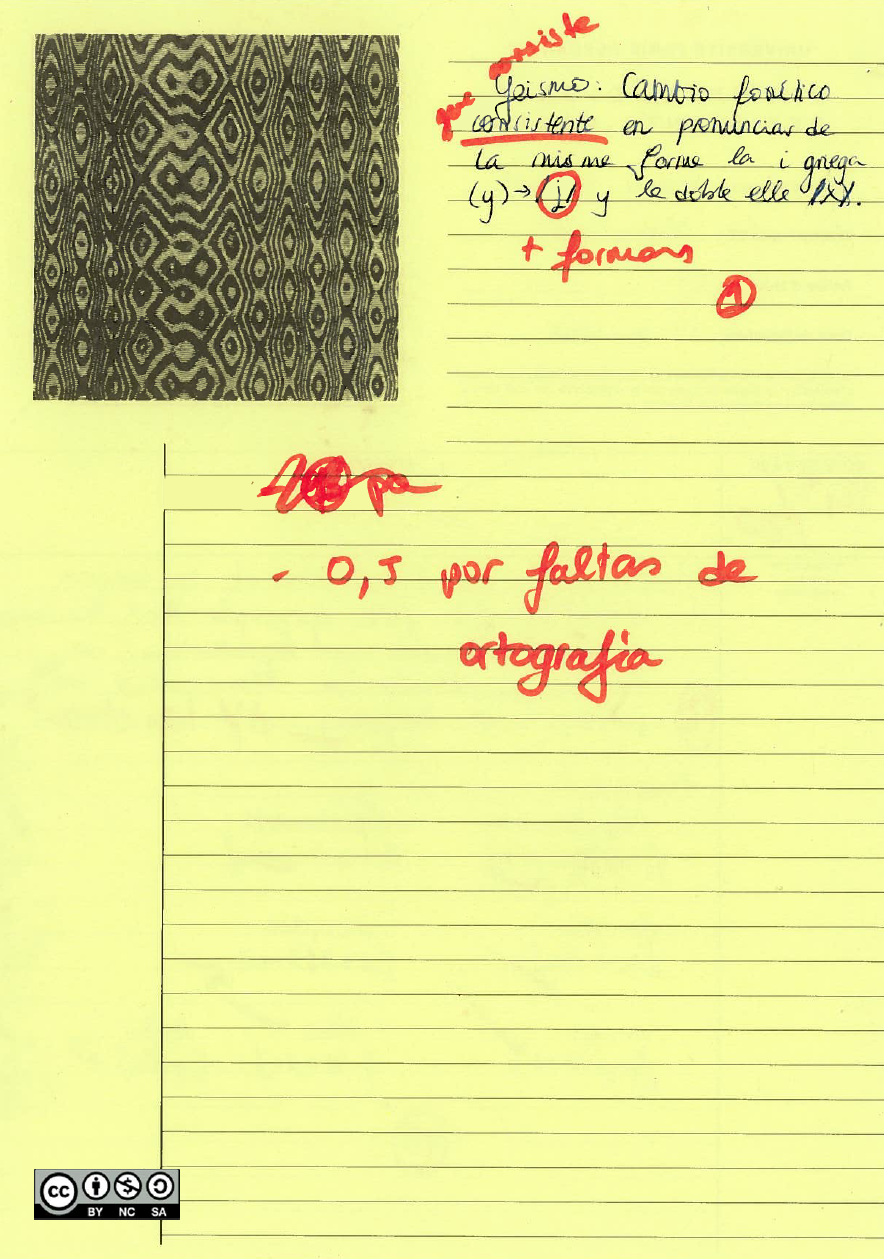 que consiste
Yeismo: Cambio fonético
consistente en pronunciar de
la misme forme la i griega
(y) → /j/ y le doble elle /λ/.
+ formas
1
pa
- 0,5 por faltas de
ortografía
cc
BY NC SA